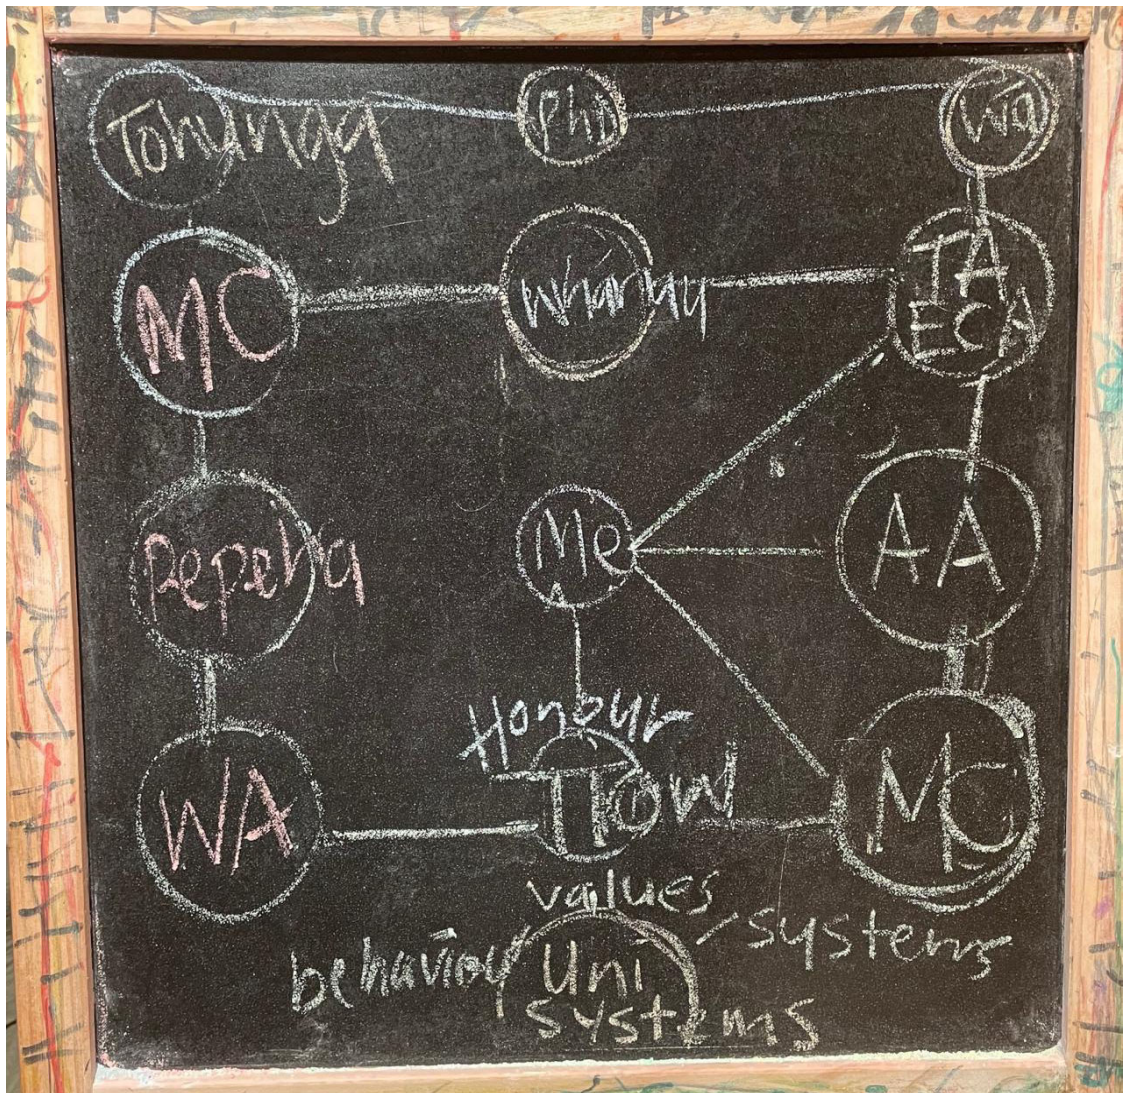 Tohunga PhD Wa
MC Whānau TA
ECA
Pepeha Me AA
Honour
WA TTOW MC
values
behaviour Uni systems
systems